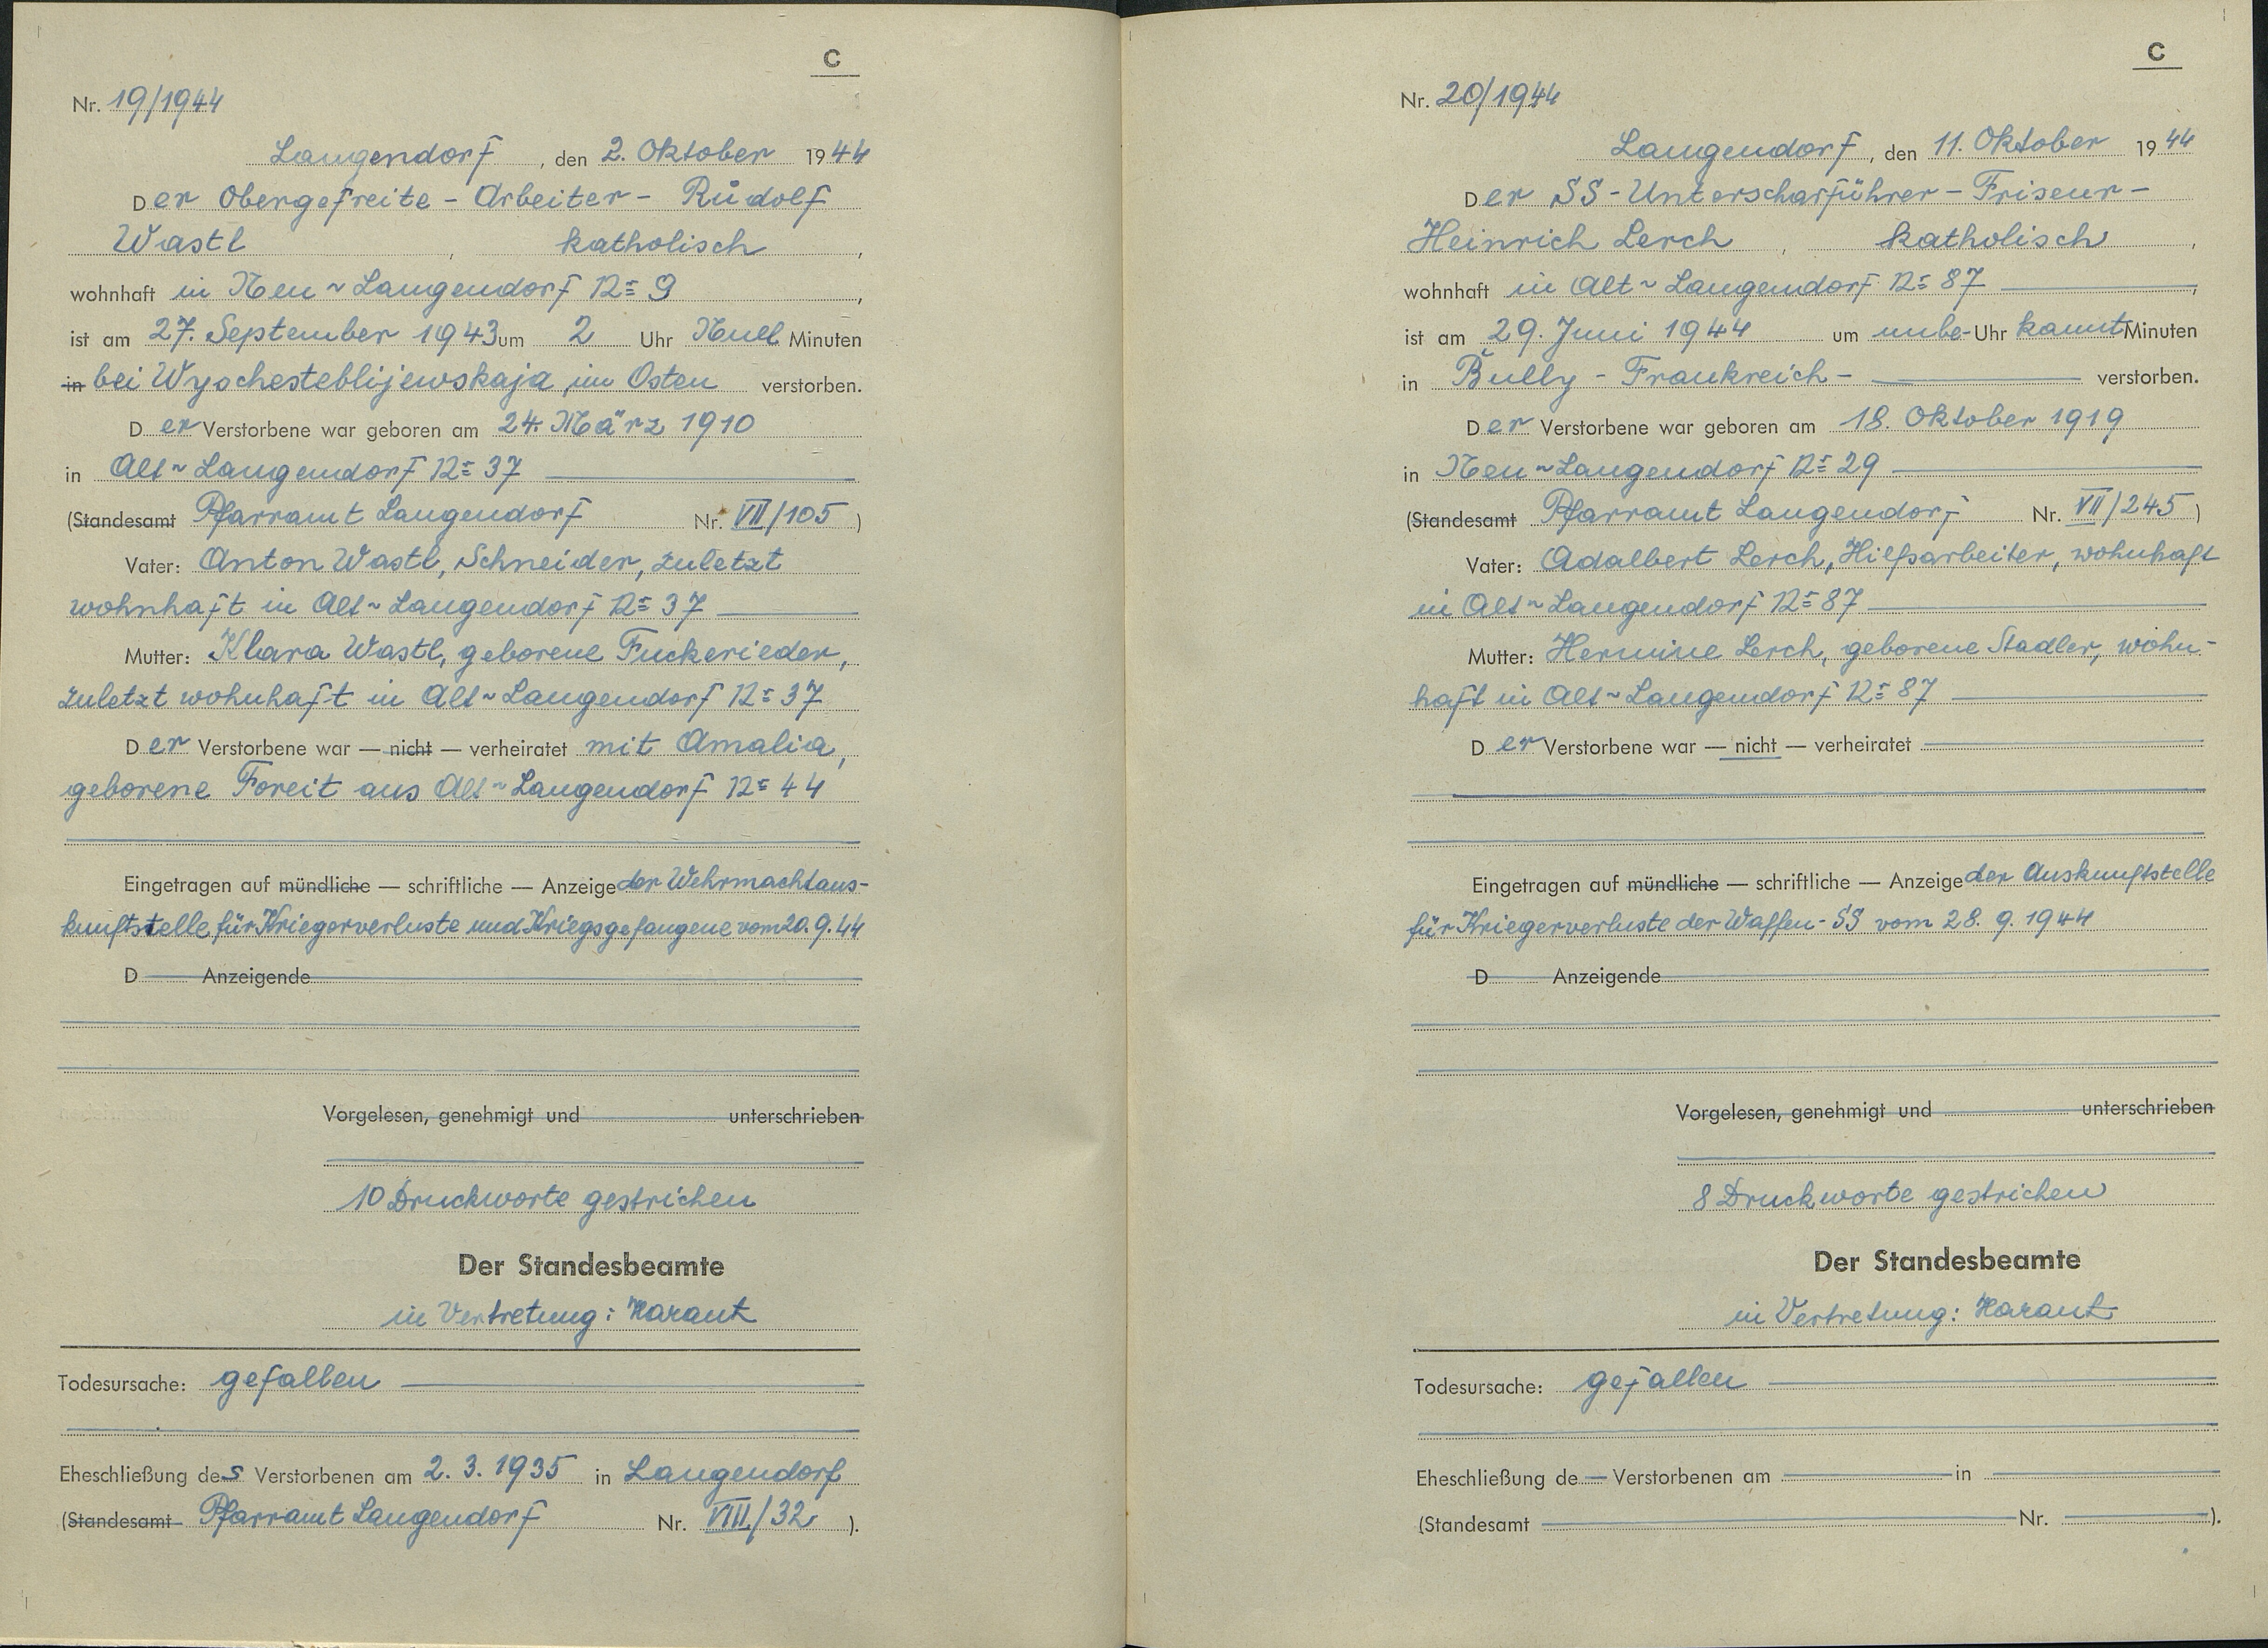 C
Nr. 19/1944
Langendorf, den 2. Oktober 1944
Der Obergefreite - Arbeiter - Rudolf
Wastl, katholisch,
wohnhaft in Neu-Langendorf No 9,
ist am 27. September 1943 um 2 Uhr Null Minuten
in bei Wyschesteblijewskaja, im Osten verstorben.
Der Verstorbene war geboren am 24. März 1910
in Alt-Langendorf No 37
(Standesamt Pfarramt Langendorf Nr. VII/105)
Vater: Anton Wastl, Schneider, zuletzt
wohnhaft in Alt-Langendorf No 37
Mutter: Klara Wastl, geborene Fuckerieder,
zuletzt wohnhaft in Alt-Langendorf No 37
Der Verstorbene war — nicht — verheiratet mit Amalia,
geborene Foreit aus Alt-Langendorf No 44
Eingetragen auf mündliche — schriftliche — Anzeige der Wehrmachtaus-
kunftstelle für Kriegerverluste und Kriegsgefangene vom 20.9.44
D Anzeigende
Vorgelesen, genehmigt und unterschrieben
10 Druckworte gestrichen
Der Standesbeamte
in Vertretung: Harant
Todesursache: gefallen
Eheschließung des Verstorbenen am 2. 3. 1935 in Langendorf
(Standesamt Pfarramt Langendorf Nr. VIII/32).
C
Nr. 20/1944
Langendorf, den 11. Oktober 1944
Der SS-Unterscharführer - Friseur -
Heinrich Lerch, katholisch,
wohnhaft in Alt-Langendorf No 87,
ist am 29. Juni 1944 um unbe- Uhr kannt Minuten
in Bully - Frankreich - verstorben.
Der Verstorbene war geboren am 18. Oktober 1919
in Neu-Langendorf No 29
(Standesamt Pfarramt Langendorf Nr. VII/245)
Vater: Adalbert Lerch, Hilfsarbeiter, wohnhaft
in Alt-Langendorf No 87
Mutter: Hermine Lerch, geborene Stadler, wohn-
haft in Alt-Langendorf No 87
Der Verstorbene war — nicht — verheiratet
Eingetragen auf mündliche — schriftliche — Anzeige der Auskunftstelle
für Kriegerverluste der Waffen-SS vom 28. 9. 1944
D Anzeigende
Vorgelesen, genehmigt und unterschrieben
8 Druckworte gestrichen
Der Standesbeamte
in Vertretung: Harant
Todesursache: gefallen
Eheschließung de Verstorbenen am in
(Standesamt Nr. ).